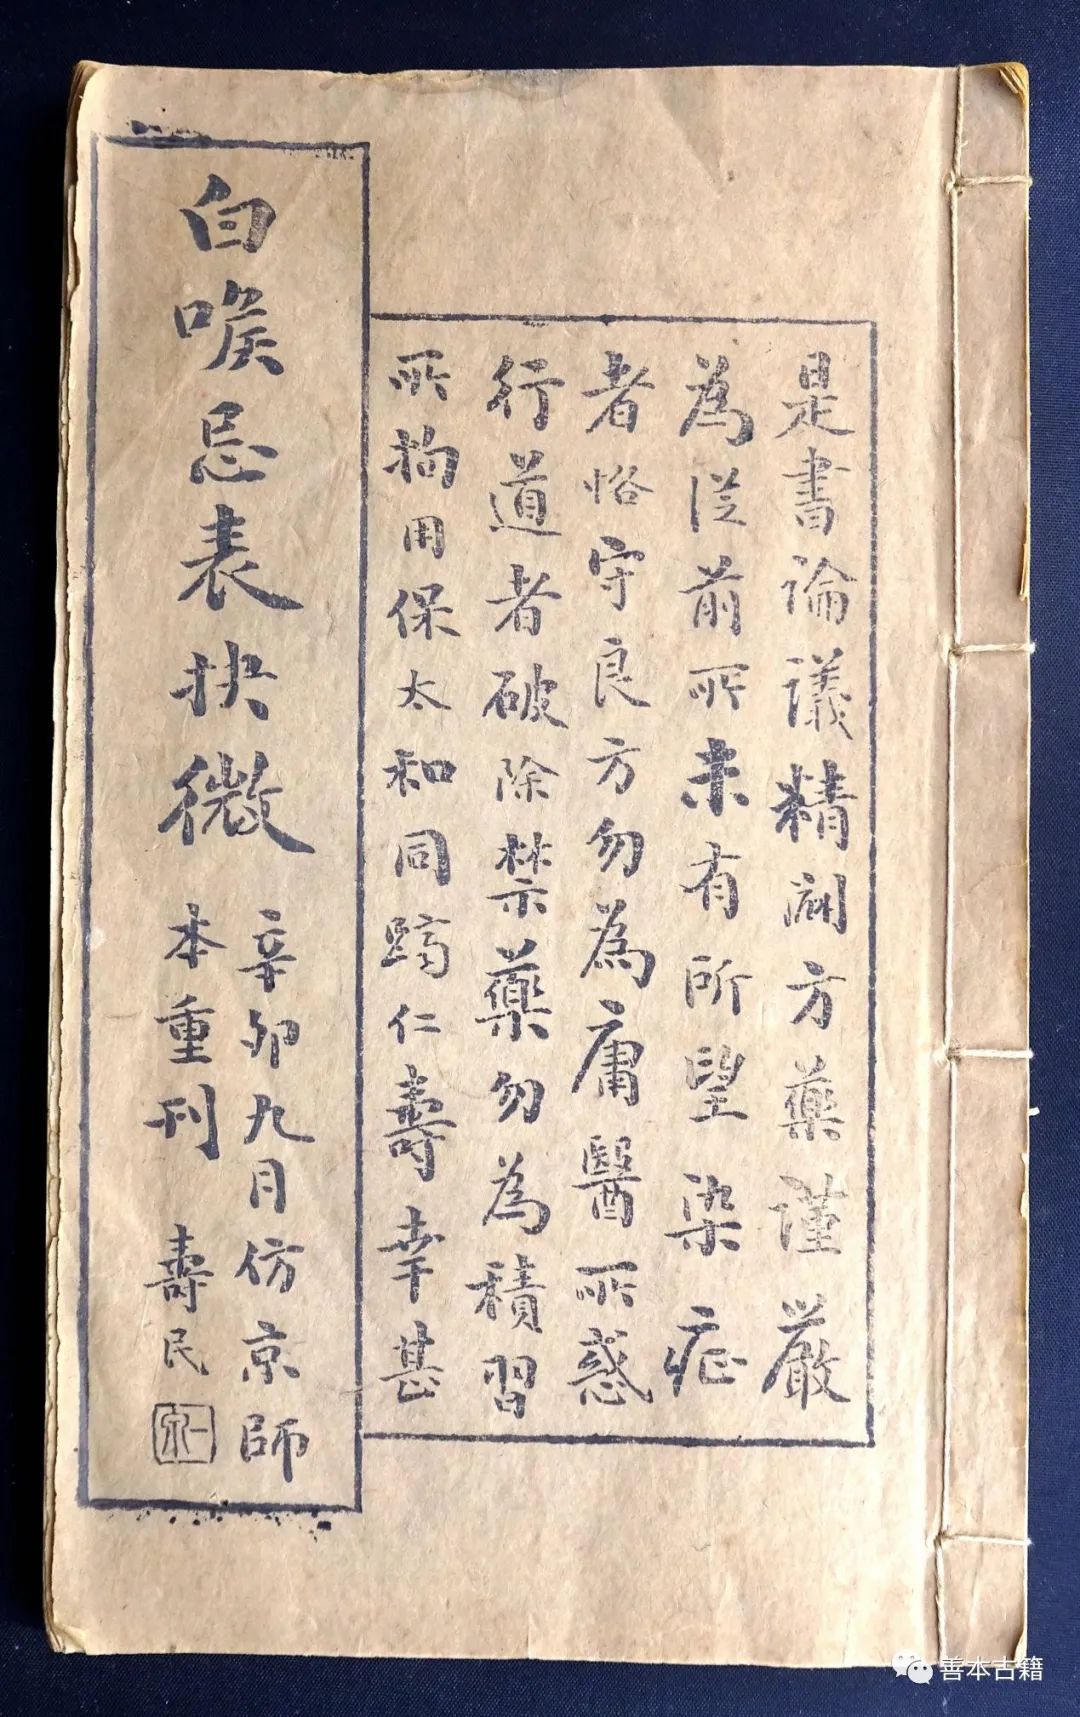 是書論議精闢方藥謹嚴
為從前所未有所望染症
者恪守良方勿為庸醫所惑
行道者破除禁藥勿為積習
所拘用保太和同躋仁壽幸甚
白喉忌表抉微
辛卯九月仿京師
本重刊 壽民
善本古籍